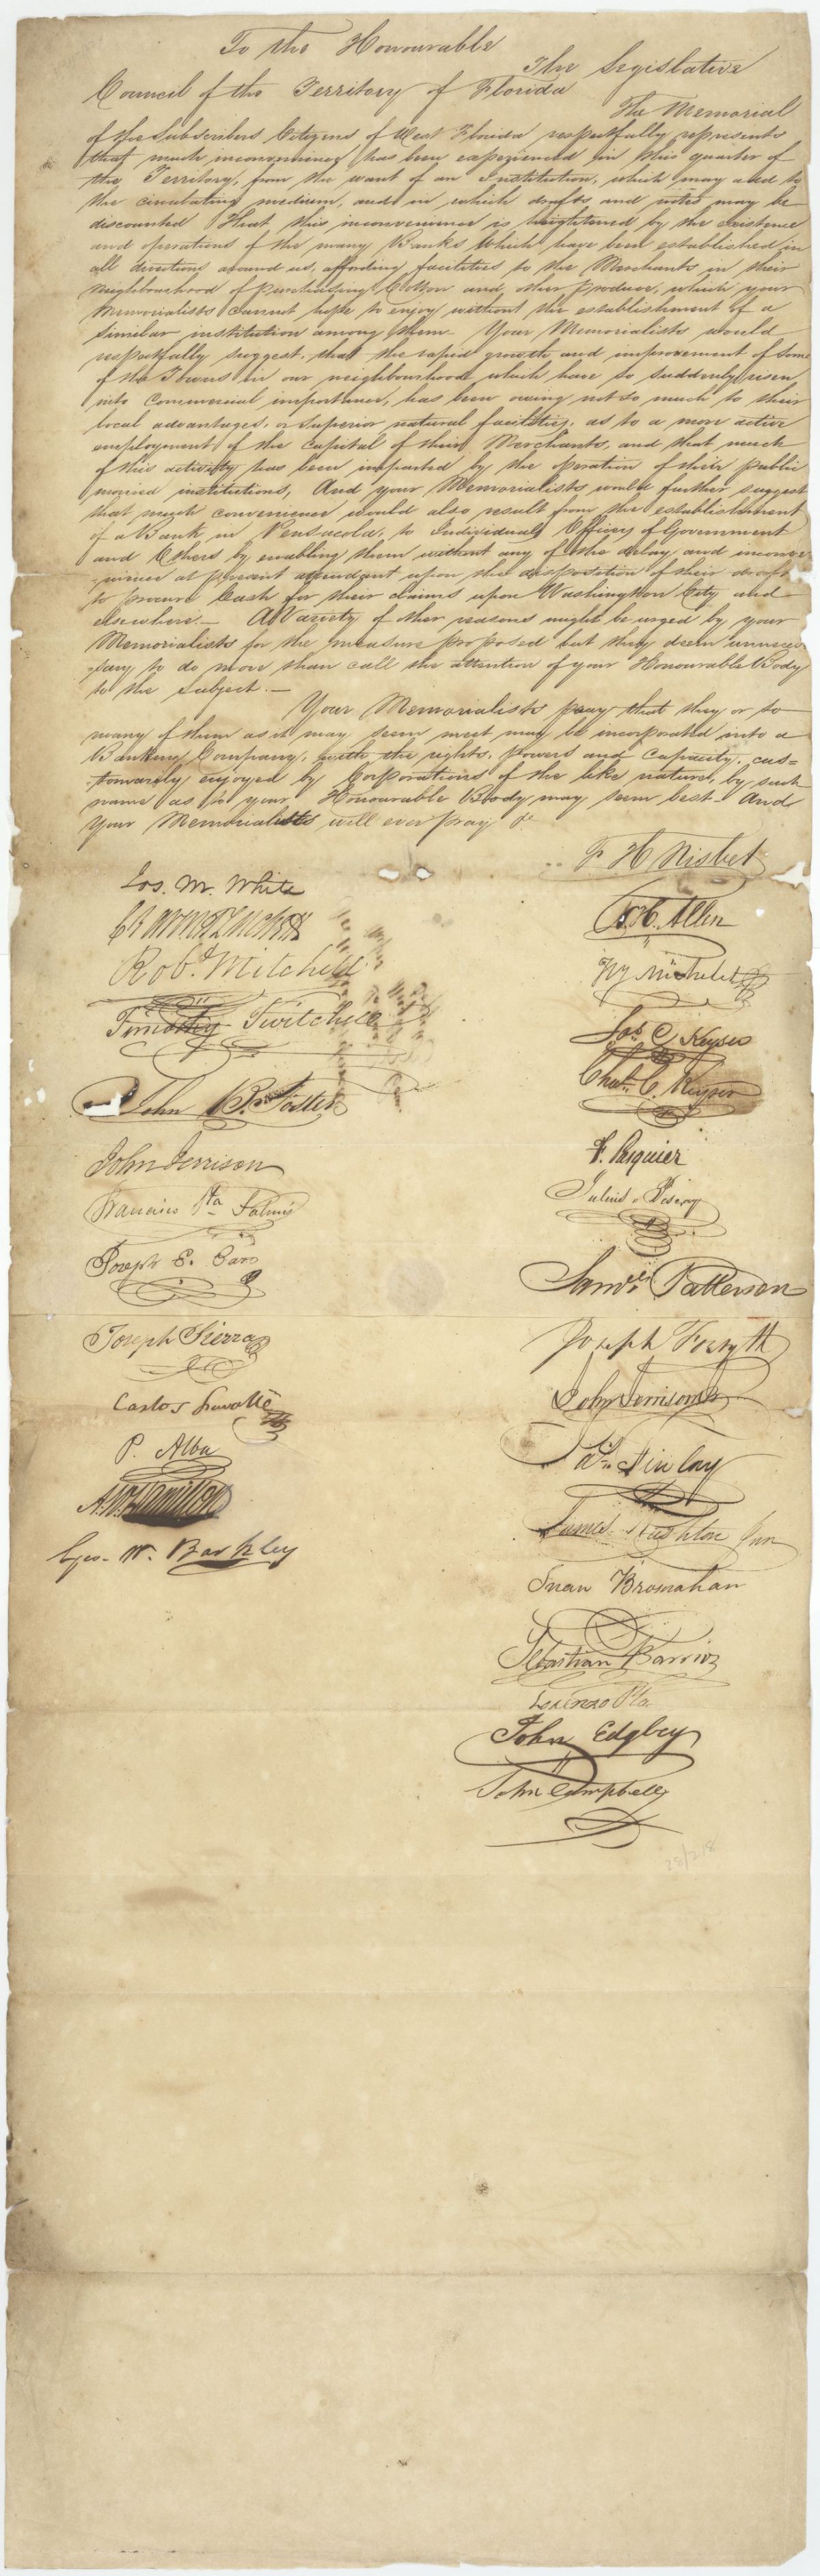 To the Honourable
The Legislative
Council of the Territory of Florida
The Memorial
of the Subscribers Citizens of West Florida respectfully represents
that much inconvenience has been experienced in this quarter of
the Territory, from the want of an Institution, which may add to
the circulating medium, and in which drafts and notes may be
discounted That this inconvenience is heightened by the existence
and operations of the many Banks which have been established in
all directions around us, affording facilities to the Merchants in their
neighbourhood of purchasing Cotton and other produce, which your
Memorialists cannot hope to enjoy without the establishment of a
similar institution among them - Your Memorialists would
respectfully suggest, that the rapid growth and improvement of some
of the Towns in our neighbourhood which have so suddenly risen
into Commercial importance, has been owing not so much to their
local advantages, or superior natural facilities, as to a more active
employment of the capital of their Merchants, and that much
of this activity has been imparted by the operation of their public
monied institutions, And your Memorialists would further suggest
that much convenience would also result from the establishment
of a Bank in Pensacola, to Individuals Officers of Government
and Others by enabling them without any of the delay and inconve
-nience at present attendant upon the disposition of their drafts
to procure Cash for their claims upon Washington City and
elsewhere. - A Variety of other reasons might be urged by your
Memorialists for the measure proposed but they deem unneces
-sary to do more than call the attention of your Honourable Body
to the subject. -
Your Memorialists pray that they or so
many of them as it may seem meet may be incorporated into a
Banking Company, with the rights, powers and capacity, cus=
tomarily enjoyed by Corporations of the like nature, by such
name as to your Honourable Body may seem best - And
your Memorialists will ever pray &c
F H Nisbet
Jos. M. White
Robt. Mitchell
Timothy Twitchell
John B. Foster
John Jerrison
Joseph E. Caro
Joseph Sierra
Carlos Lavalle
P. Alba
Geo. W. Barkley
H. Allen
Jos. C Keyser
Chas. C. Keyser
F. Pasquier
Saml. Patterson
Joseph Forsyth
John Jerrison Jr
James Jun
Juan Brosnahan
Sebastian Barrios
Lorenzo Pta.
John Edgbey
John Campbell